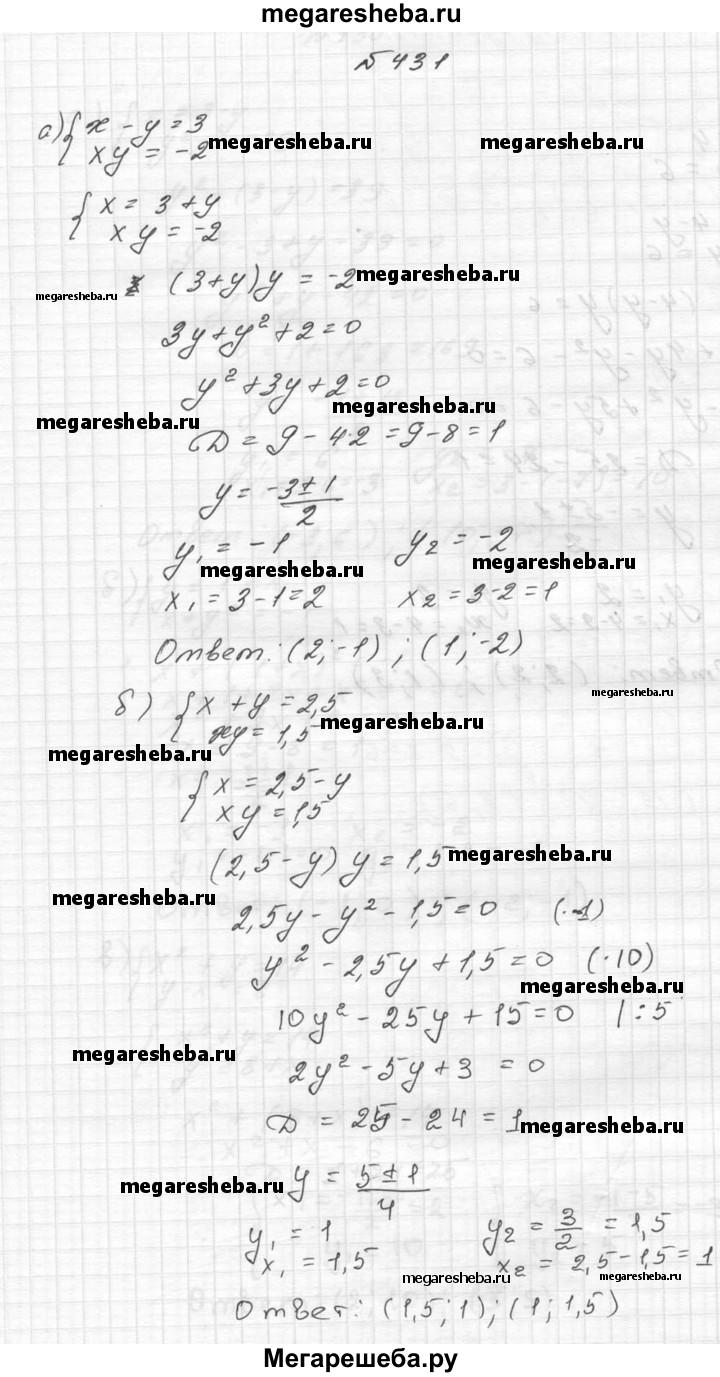 megaresheba.ru
№ 431
а) { x - y = 3
xy = -2 megaresheba.ru megaresheba.ru
{ x = 3 + y
xy = -2
megaresheba.ru (3+y)y = -2 megaresheba.ru
3y + y² + 2 = 0
y² + 3y + 2 = 0
megaresheba.ru megaresheba.ru
D = 9 - 4·2 = 9 - 8 = 1
y = (-3 ± 1)/2
y₁ = -1 y₂ = -2
megaresheba.ru megaresheba.ru
x₁ = 3 - 1 = 2 x₂ = 3 - 2 = 1
Ответ: (2; -1) ; (1; -2)
megaresheba.ru
б) { x + y = 2,5
xy = 1,5 megaresheba.ru
megaresheba.ru
{ x = 2,5 - y
xy = 1,5
(2,5 - y) y = 1,5 megaresheba.ru
megaresheba.ru
2,5y - y² - 1,5 = 0 (·-1)
y² - 2,5y + 1,5 = 0 (·10)
megaresheba.ru
10y² - 25y + 15 = 0 | : 5
megaresheba.ru
2y² - 5y + 3 = 0
D = 25 - 24 = 1 megaresheba.ru
megaresheba.ru y = (5 ± 1)/4
y₁ = 1 y₂ = 3/2 = 1,5
x₁ = 1,5 x₂ = 2,5 - 1,5 = 1
megaresheba.ru megaresheba.ru
Ответ: (1,5; 1); (1; 1,5)
Мегарешеба.ру